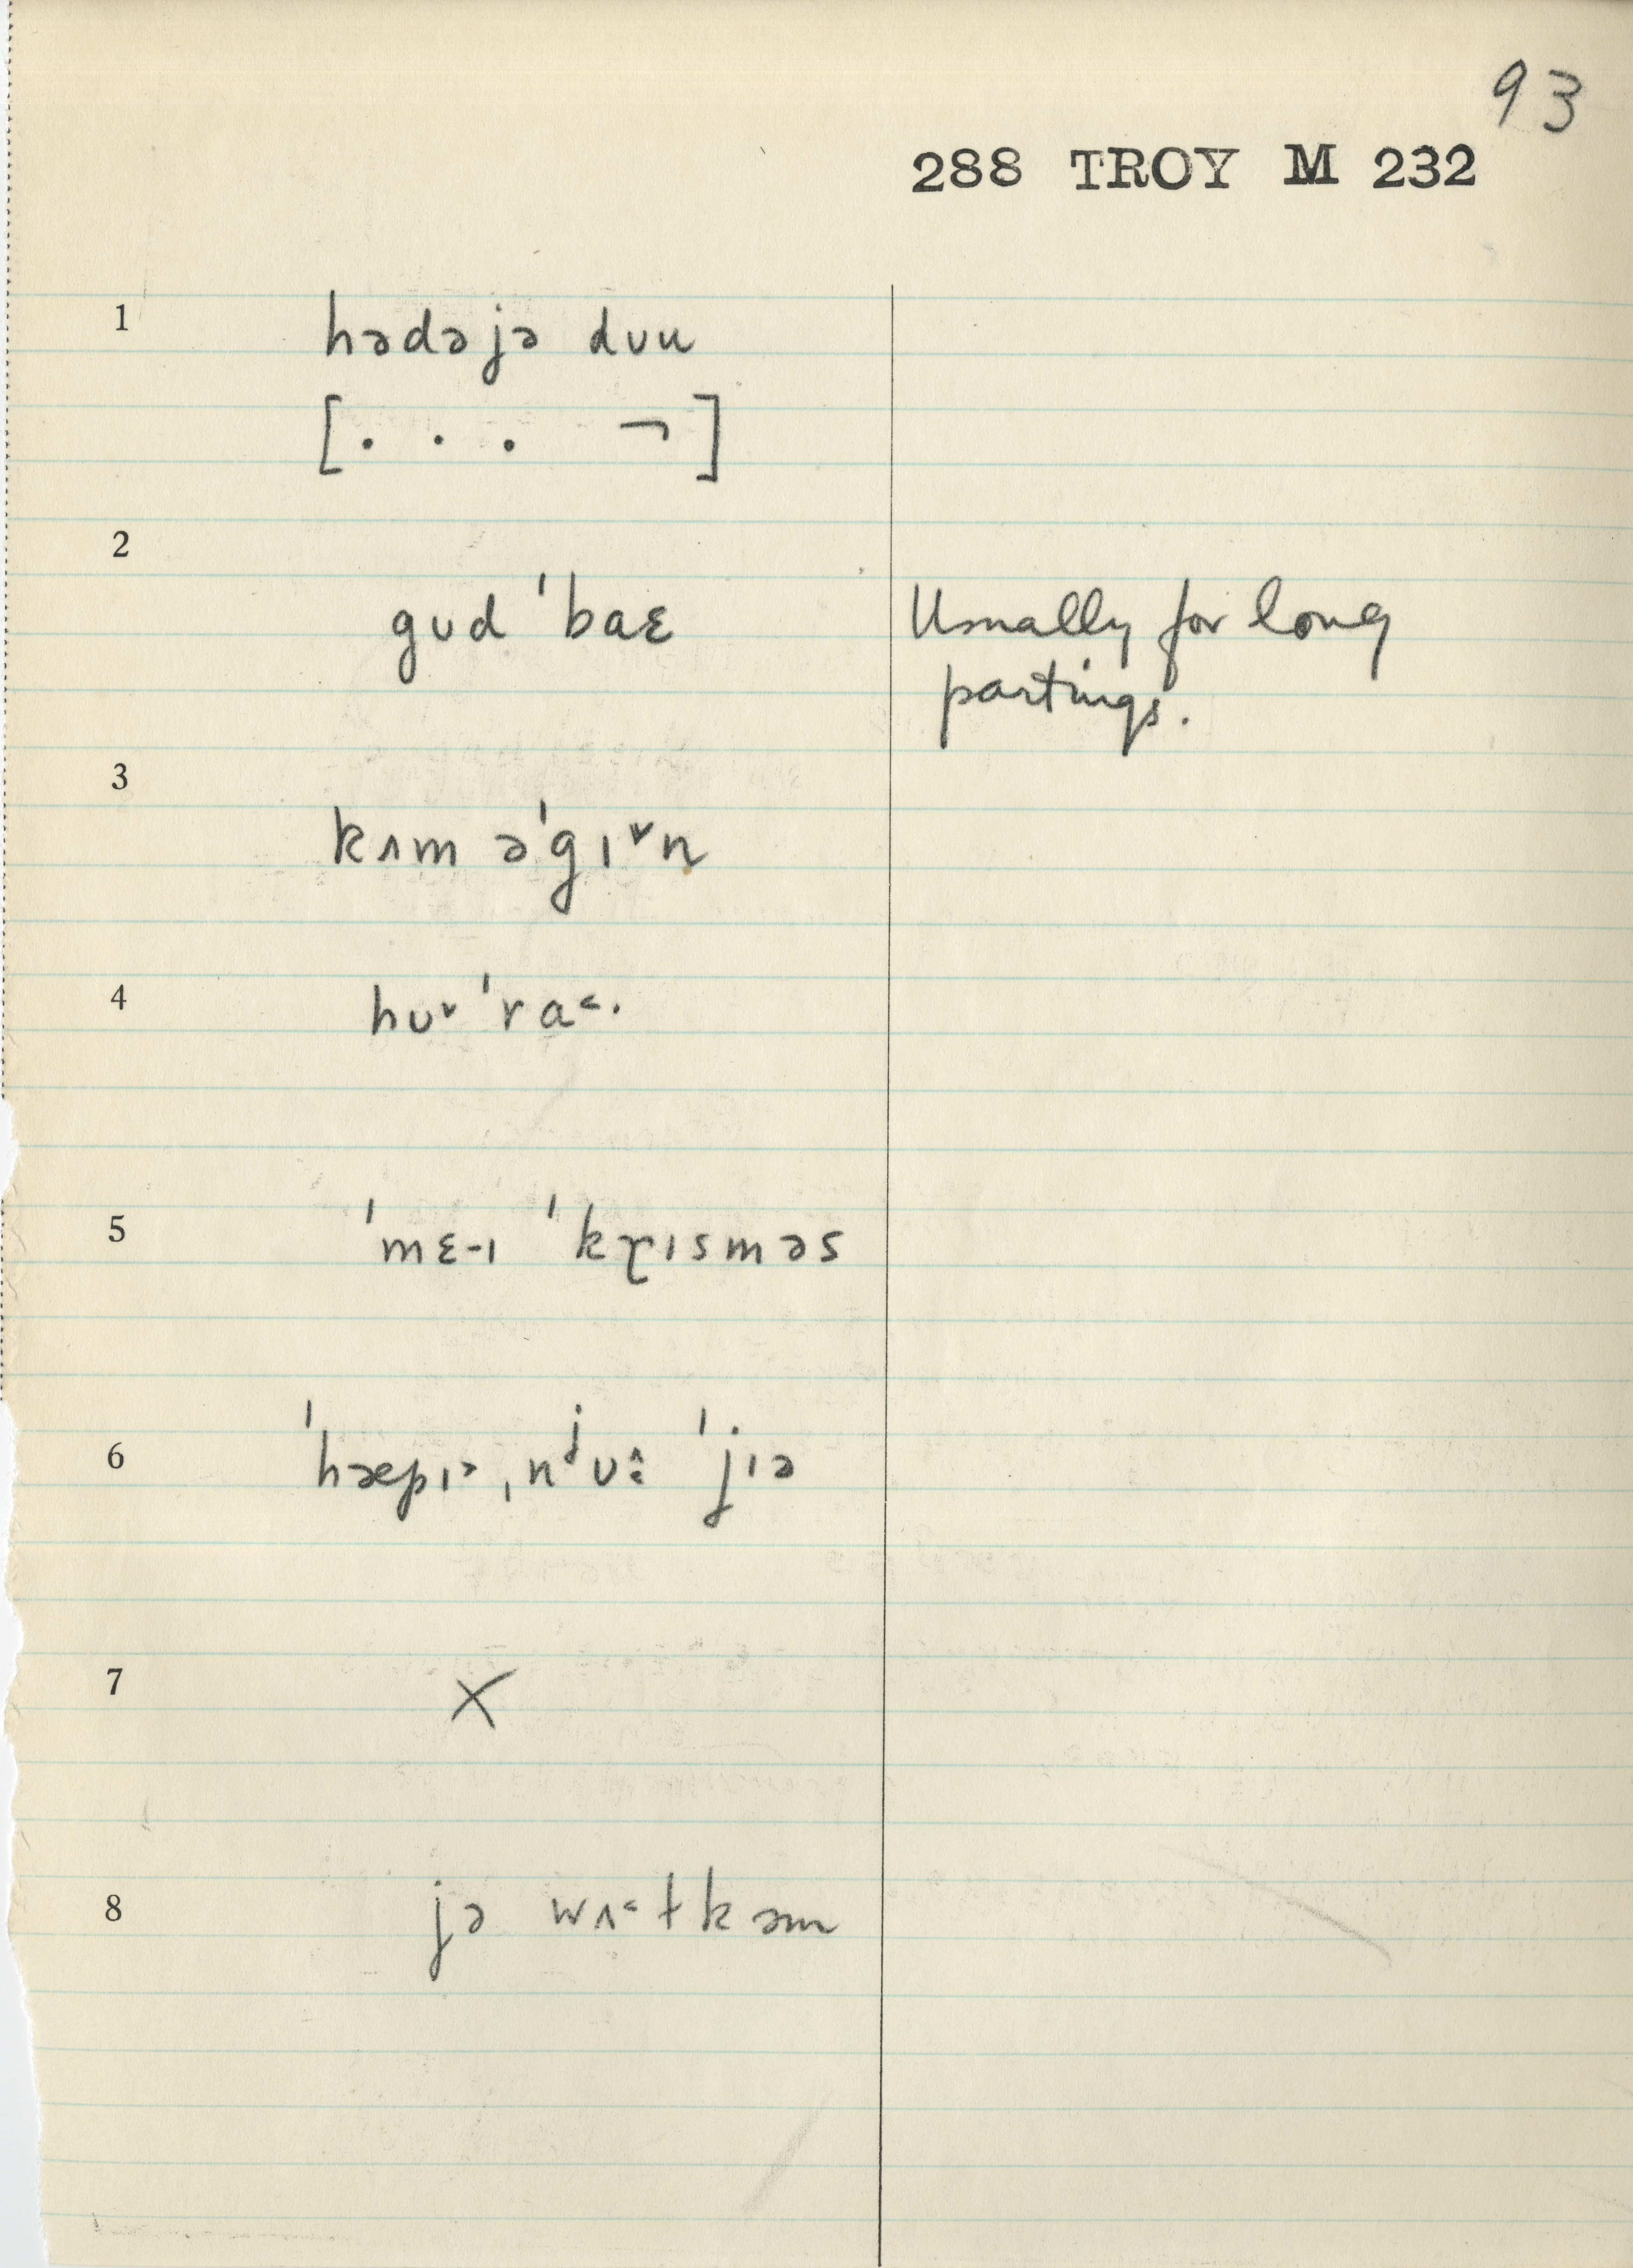 93
288 TROY M 232
1 hədəjə dʊu
[. . . ¬]
2
gʊd ˈbaɛ Usually for long
partings.
3
kʌm əˈgɪ˅n
4 hʊ˅ ˈra˂.
5 ˈmɛ-ɪ ˈkɽɪsməs
6 ˈhæpɪ˃ ˌnʲʊ: ˈjɪə
7 X
8 jə wʌ˂ɫkəm